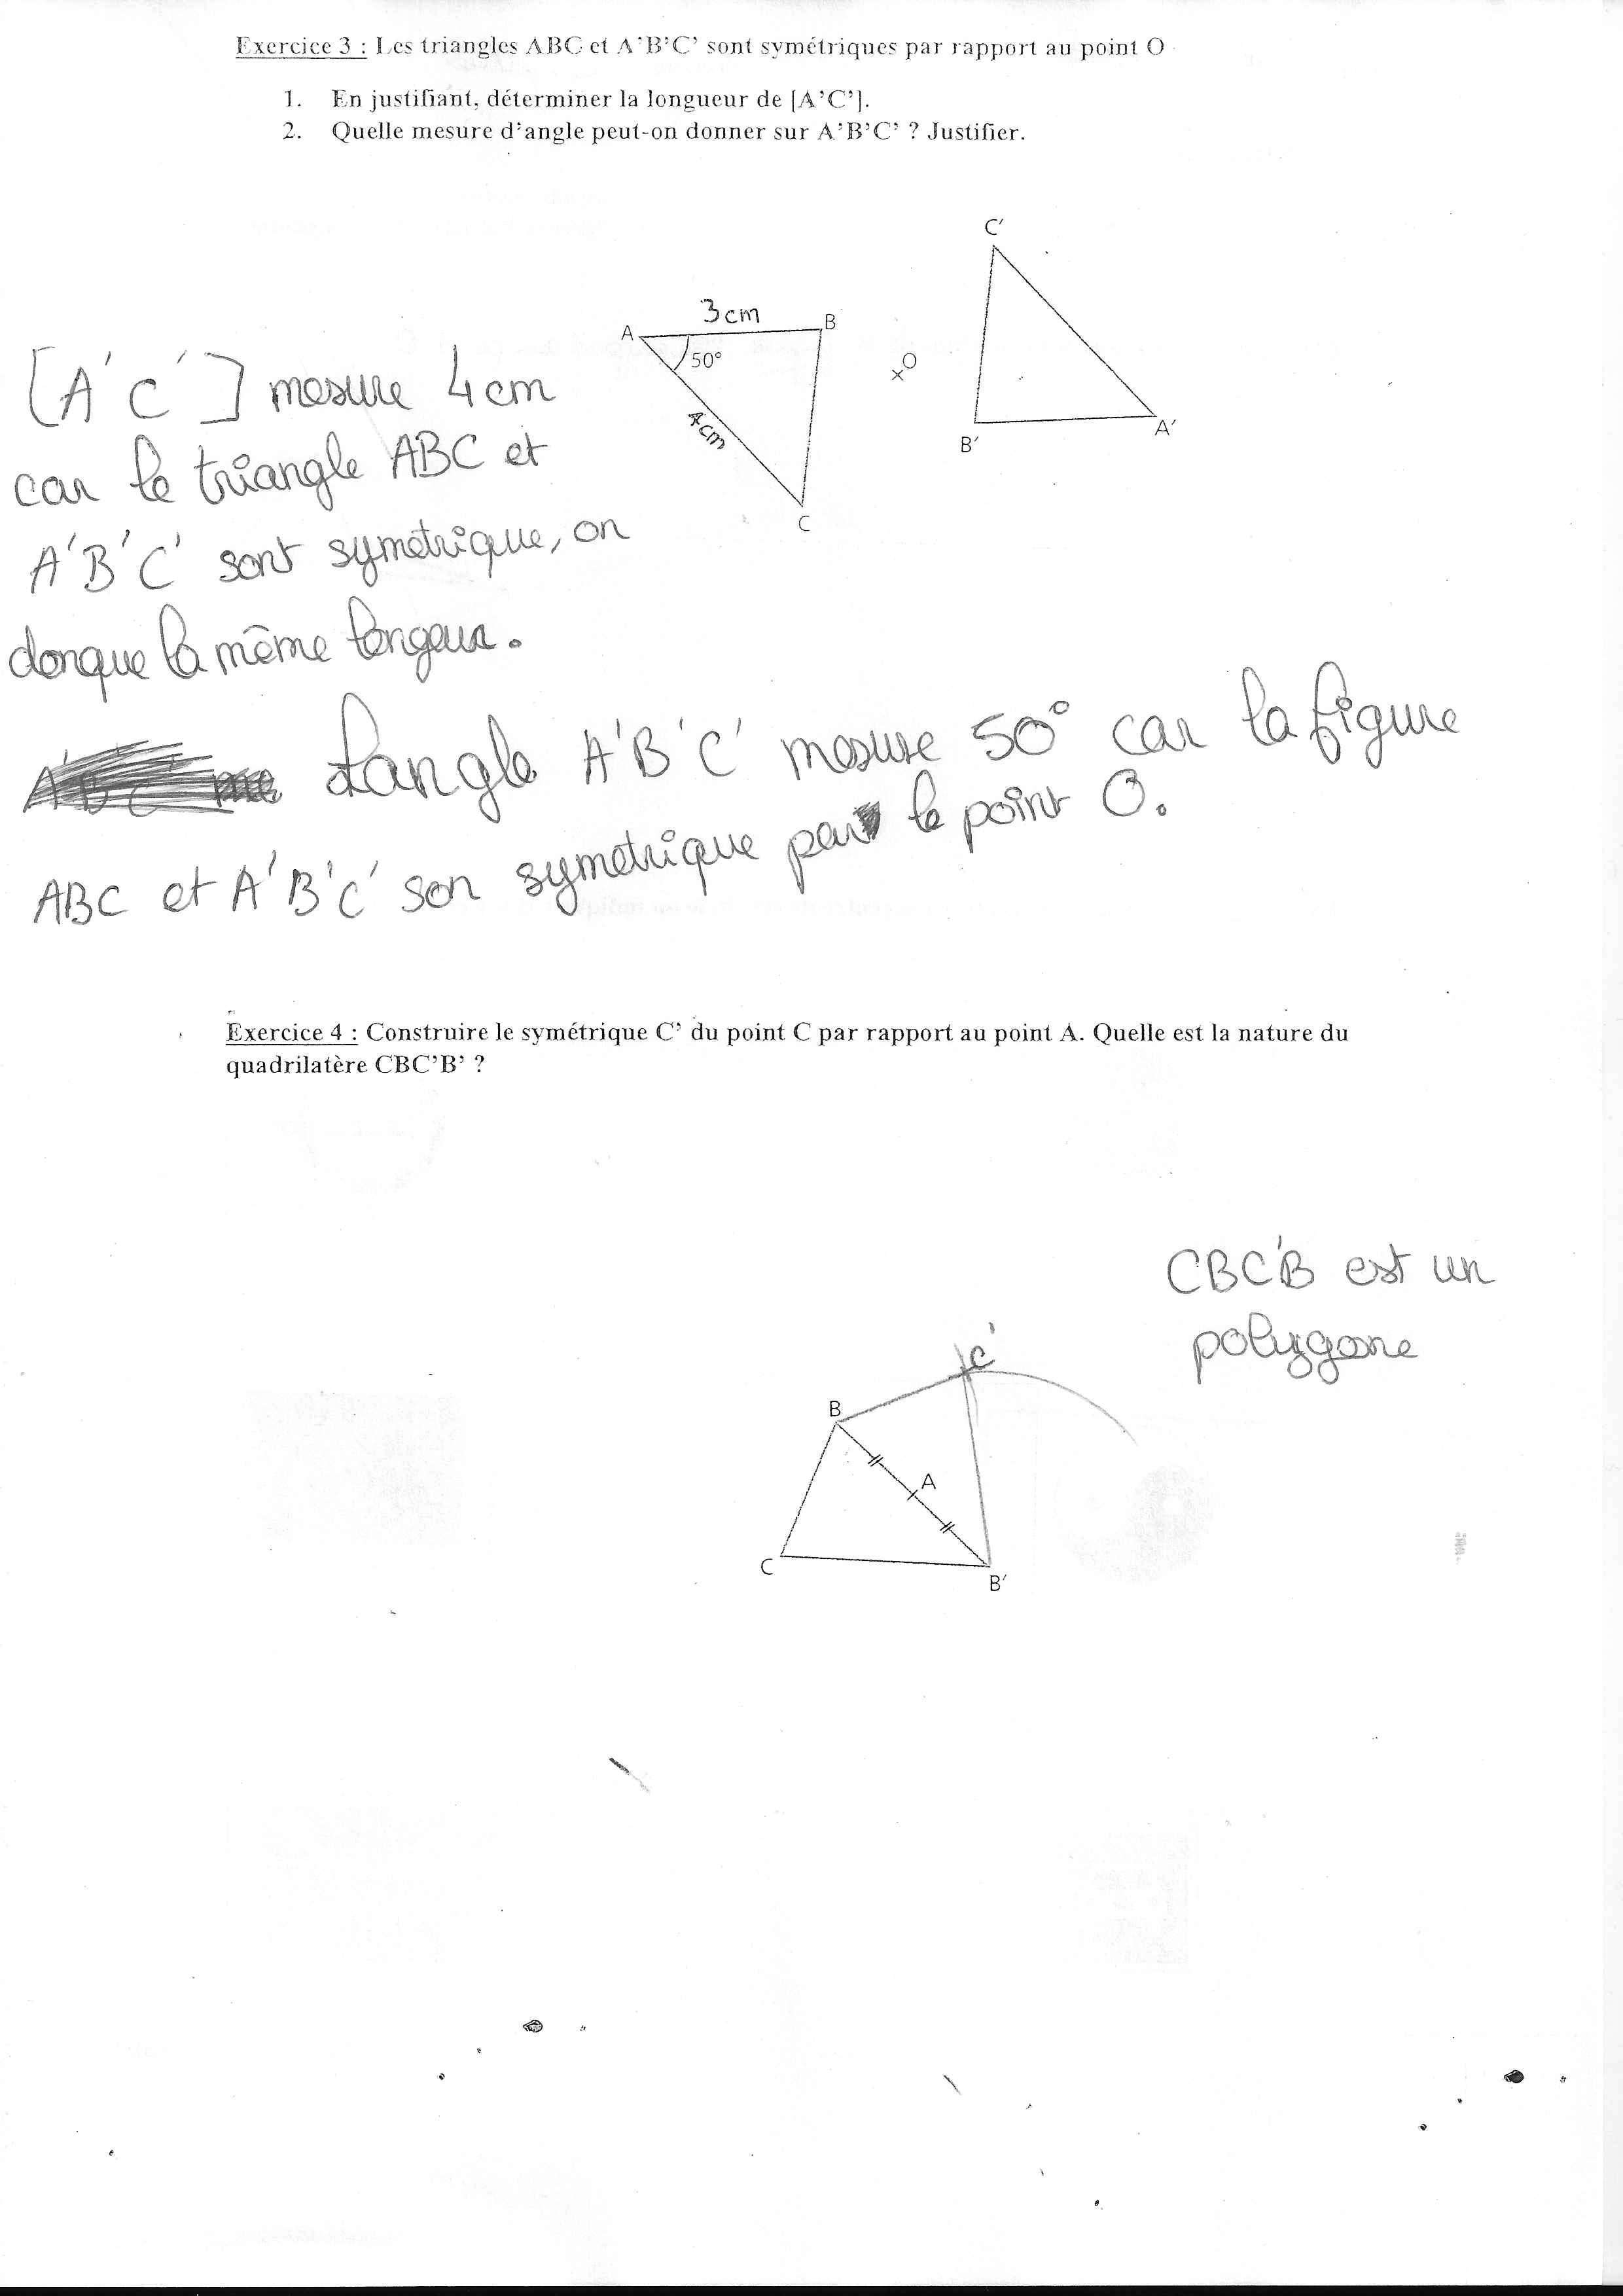 Exercice 3 : Les triangles ABC et A’B’C’ sont symétriques par rapport au point O
1. En justifiant, déterminer la longueur de [A’C’].
2. Quelle mesure d’angle peut-on donner sur A’B’C’ ? Justifier.
C'
3cm
A
B
50°
O
4cm
B'
A'
C
[A'C'] mesure 4cm
car le triangle ABC et
A'B'C' sont symetrique, on
donque la même longeur.
L'angle A'B'C' mesure 50° car la figure
ABC et A'B'C' son symetrique par le point O.
Exercice 4 : Construire le symétrique C’ du point C par rapport au point A. Quelle est la nature du
quadrilatère CBC’B’ ?
CBC'B est un
polygone
C'
B
A
C
B'